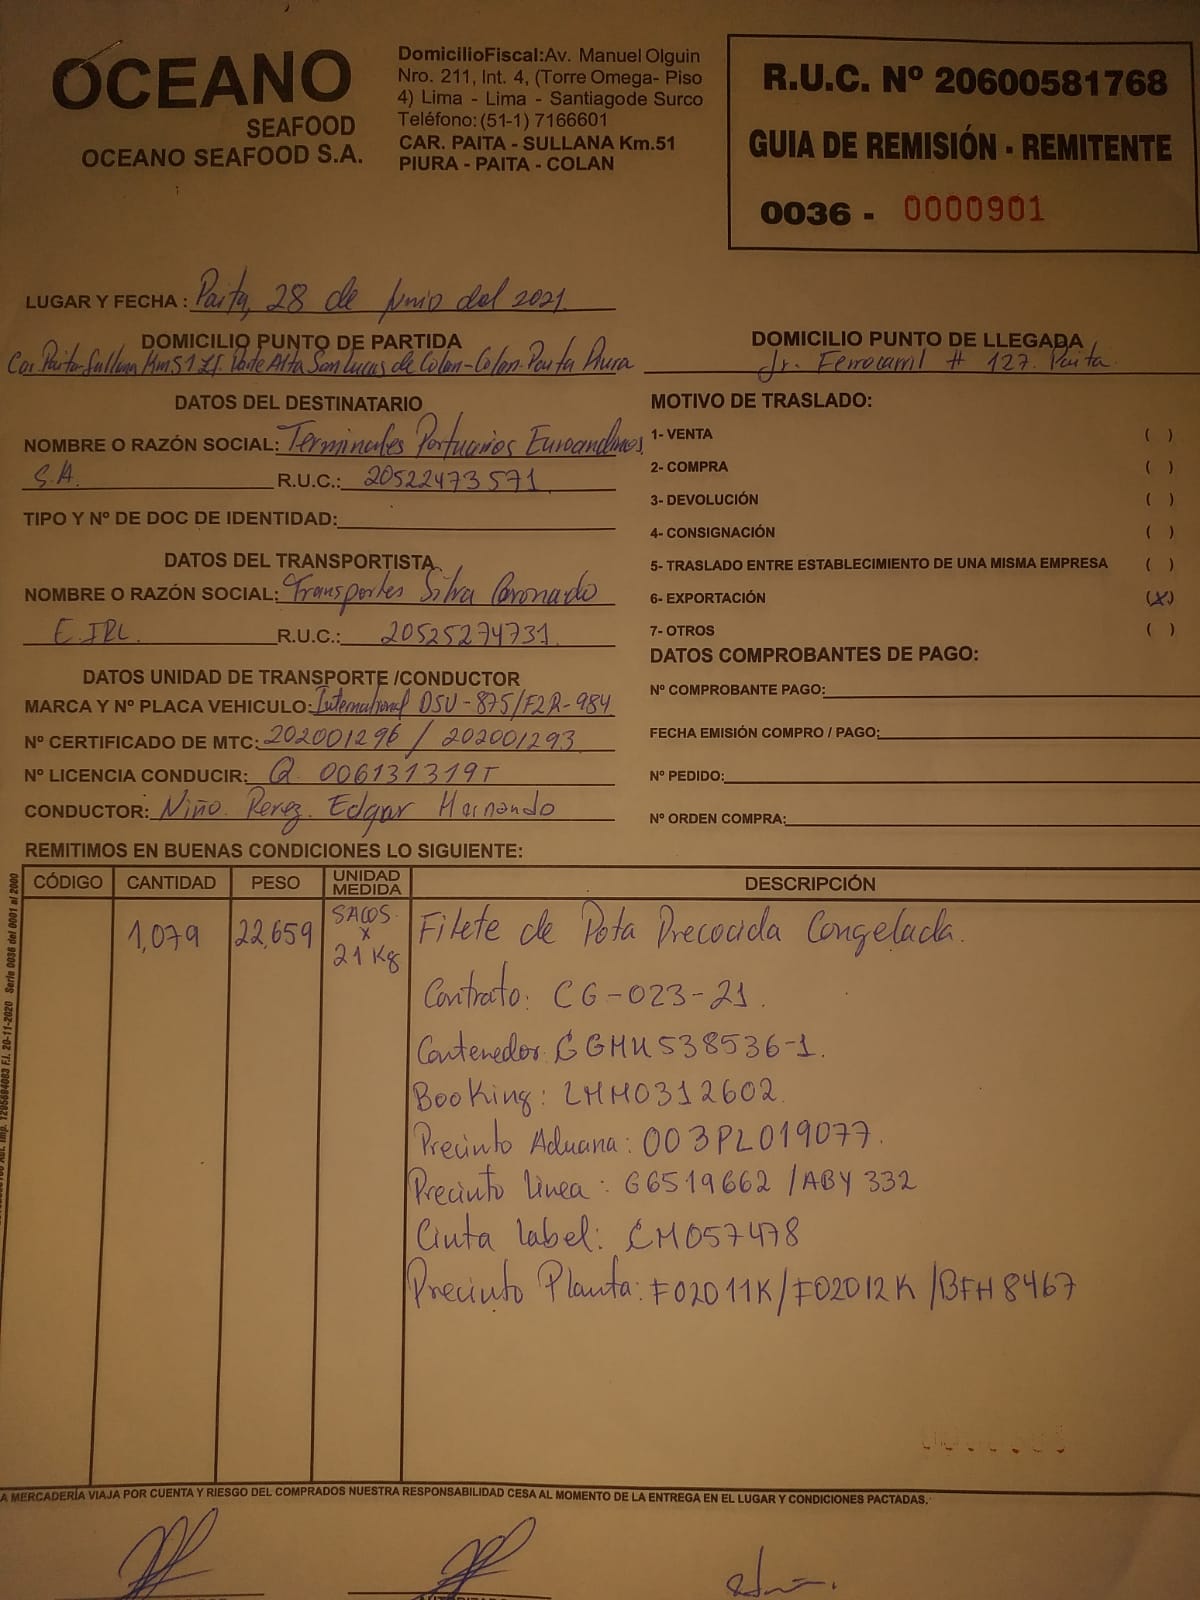 OCEANO
SEAFOOD
OCEANO SEAFOOD S.A.
DomicilioFiscal:Av. Manuel Olguin
Nro. 211, Int. 4, (Torre Omega- Piso
4) Lima - Lima - Santiagode Surco
Teléfono:(51-1) 7166601
CAR. PAITA - SULLANA Km.51
PIURA - PAITA - COLAN
R.U.C. Nº 20600581768
GUIA DE REMISIÓN - REMITENTE
0036 - 0000901
LUGAR Y FECHA : Paita, 28 de Junio del 2021.
DOMICILIO PUNTO DE PARTIDA
Car. Paita-Sullana Km 51 Parte Alta San Lucas de Colan-Colan-Paita Piura
DOMICILIO PUNTO DE LLEGADA
Jr. Ferrocarril # 127. Paita.
DATOS DEL DESTINATARIO
NOMBRE O RAZÓN SOCIAL: Terminales Portuarios Euroandinos
S.A. R.U.C.: 20522473571
TIPO Y Nº DE DOC DE IDENTIDAD:
DATOS DEL TRANSPORTISTA
NOMBRE O RAZÓN SOCIAL: Transportes Silva Coronado
E.IRL. R.U.C.: 20525274731.
DATOS UNIDAD DE TRANSPORTE /CONDUCTOR
MARCA Y Nº PLACA VEHICULO: International DSU-875/F2R-984
Nº CERTIFICADO DE MTC: 202001296 / 202001293
Nº LICENCIA CONDUCIR: Q 006131319T
CONDUCTOR: Niño. Perez. Edgar Hernando
MOTIVO DE TRASLADO:
1- VENTA ( )
2- COMPRA ( )
3- DEVOLUCIÓN ( )
4- CONSIGNACIÓN ( )
5- TRASLADO ENTRE ESTABLECIMIENTO DE UNA MISMA EMPRESA ( )
6- EXPORTACIÓN (X)
7- OTROS ( )
DATOS COMPROBANTES DE PAGO:
Nº COMPROBANTE PAGO:
FECHA EMISIÓN COMPRO / PAGO:
Nº PEDIDO:
Nº ORDEN COMPRA:
REMITIMOS EN BUENAS CONDICIONES LO SIGUIENTE:
CÓDIGO CANTIDAD PESO UNIDAD MEDIDA DESCRIPCIÓN
1,079 22,659 SACOS x 21 Kg Filete de Pota Precocida Congelada.
Contrato: CG-023-21.
Contenedor: CGMU538536-1.
Booking: LMM0312602.
Precinto Aduana: 003PL019077.
Precinto Linea: G6519662 /ABY 332
Cinta Label: CM057478
Precinto Planta: F02011K/F02012K/BFH8467
Serie 0036 del 0001 al 2000
F.I. 20-11-2020
A MERCADERÍA VIAJA POR CUENTA Y RIESGO DEL COMPRADOS NUESTRA RESPONSABILIDAD CESA AL MOMENTO DE LA ENTREGA EN EL LUGAR Y CONDICIONES PACTADAS.